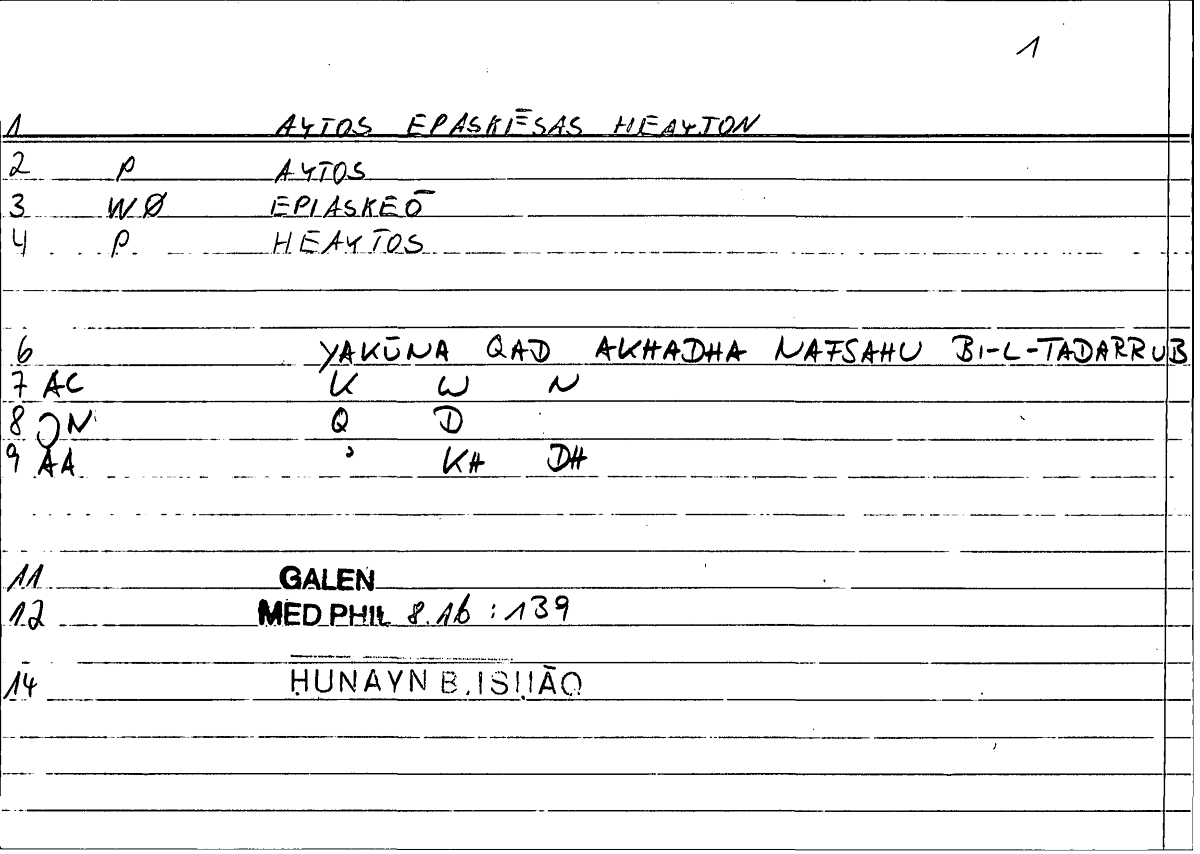 1
1 AYTOS EPASKĒSAS HEAYTON
2 P AYTOS
3 WØ EPIASKEŌ
4 P HEAYTOS
6 YAKŪNA QAD AKHADHA NAFSAHU BI-L-TADARRUB
7 AC K W N
8 QN Q D
9 AA ʾ KH DH
11 GALEN
12 MED PHIL 8.16 : 139
14 ḤUNAYN B. ISḤĀQ